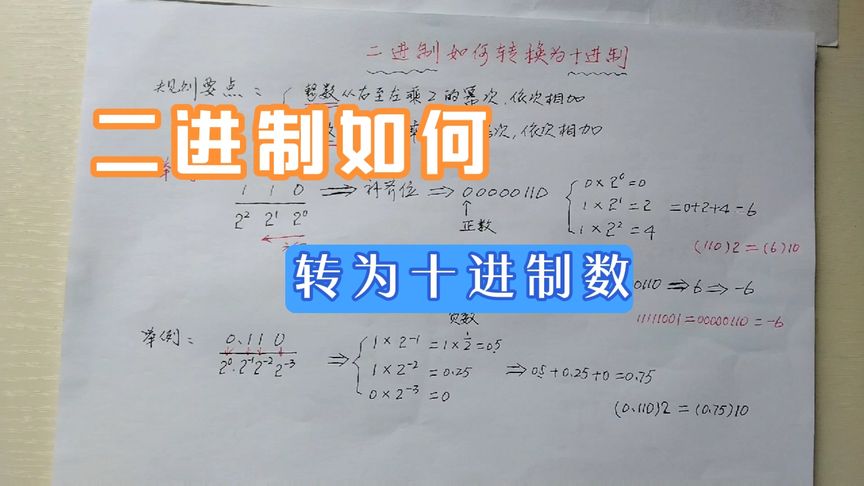 二进制如何转换为十进制
规则要点：{整数从右至左乘2的幂次，依次相加
次，依次相加
二进制如何
1 1 0 ⇒ 补齐位 ⇒ 00000110 { 0×2⁰=0
2² 2¹ 2⁰ ↑ 1×2¹=2 =0+2+4=6
正数 1×2²=4
(110)2=(6)10
转为十进制数
0110 ⇒ 6 ⇒ -6
负数 11111001=00000110=-6
举例： 0.110 ⇒ { 1×2⁻¹=1×½=0.5
2⁰.2⁻¹2⁻²2⁻³ 1×2⁻²=0.25 ⇒ 0.5+0.25+0=0.75
0×2⁻³=0
(0.110)2=(0.75)10